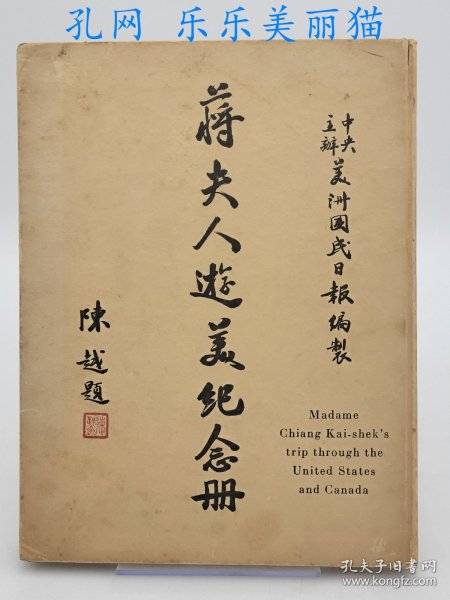 孔网 乐乐美丽猫
中央
主辦
美洲國民日報編製
蔣夫人遊美紀念册
陳越題
Madame
Chiang Kai-shek's
trip through the
United States
and Canada
孔夫子旧书网
www.kongfz.com